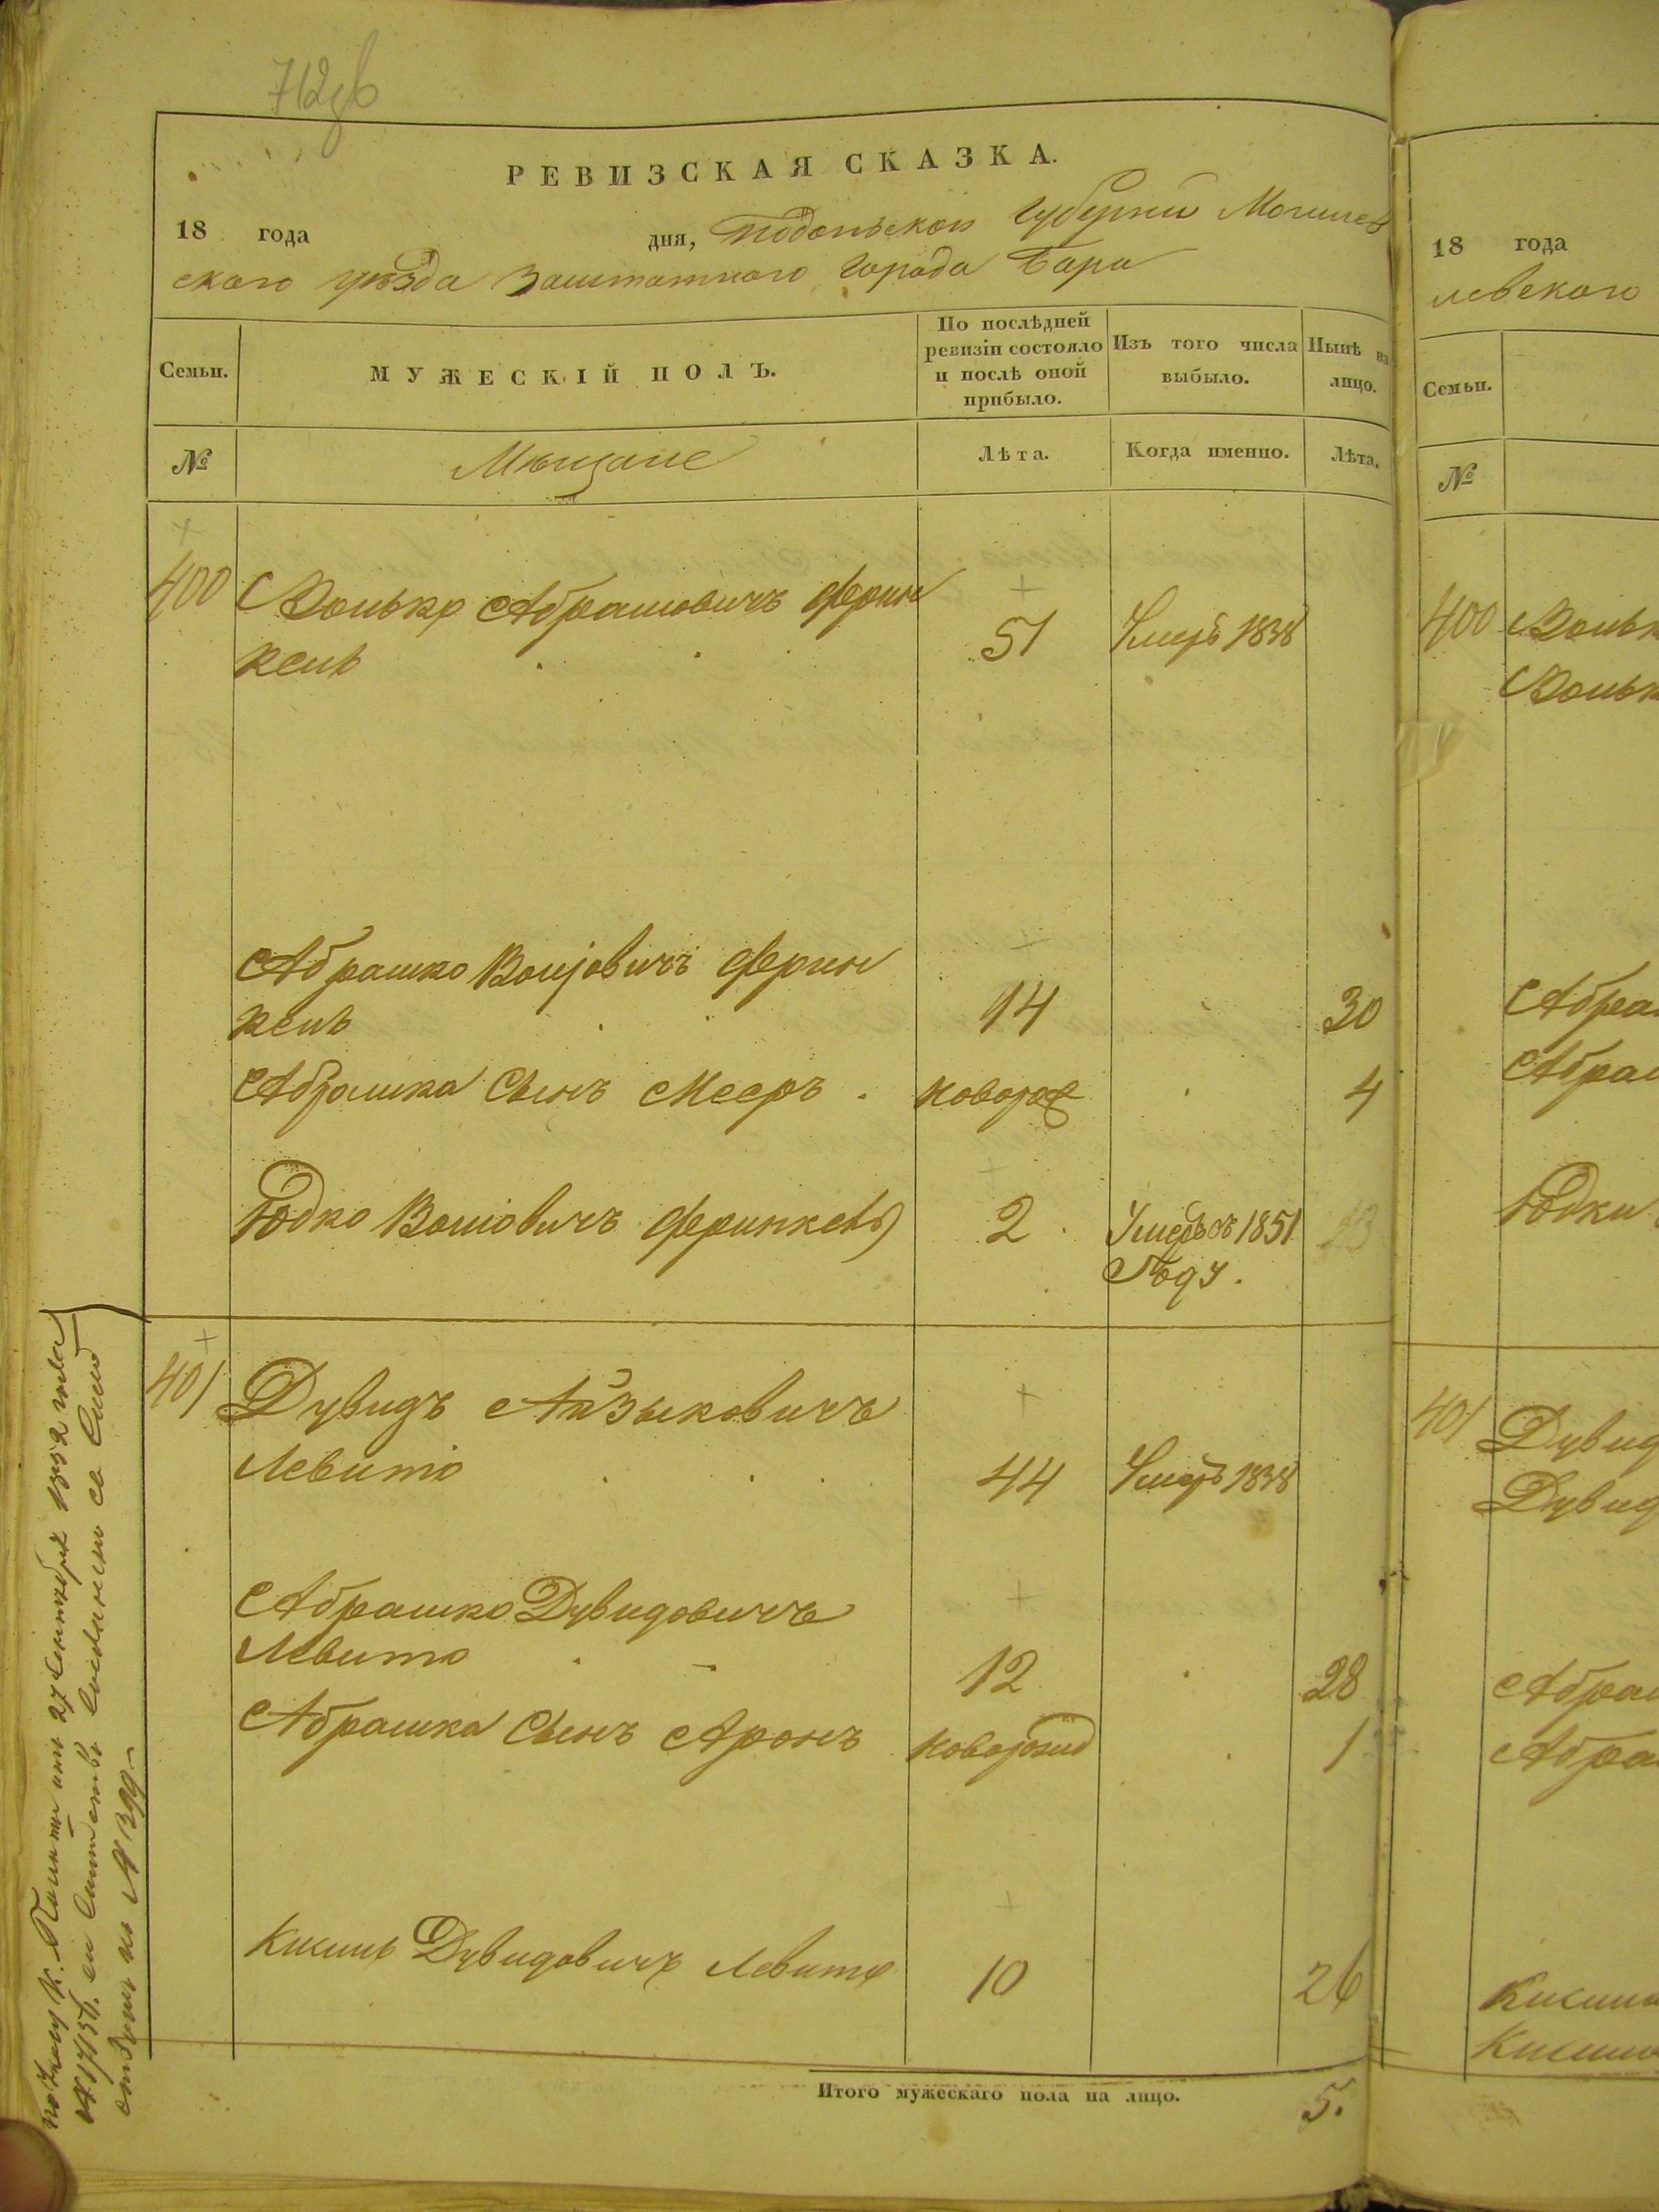 РЕВИЗСКАЯ СКАЗКА.
18 года дня, Подольской Губернии Могилев
ского уѣзда Заштатного Города Бара
Семьи.
МУЖЕСКІЙ ПОЛЪ.
По послѣдней
ревизіи состояло
и послѣ оной
прибыло.
Изъ того числа
выбыло.
Нынѣ на
лицо.
№
Мѣщане
Лѣта.
Когда именно.
Лѣта.
400 Волько Абрамовичъ Френ
кель 51 Умеръ 1838
Абрашко Вольовичъ Френ
кель 14 30
Абрашка Сынъ Мееръ новорож 4
Юдко Вольовичъ Френкель 2 Умеръ въ 1851
Году.
401 Дувидъ Айзыковичъ
Левитъ 44 Умеръ 1838
Абрашко Дувидовичъ
Левитъ 12 28
Абрашка Сынъ Аронъ новорожд 1
Кисиль Дувидовичъ Левитъ 10 26
Итого мужескаго пола на лицо. 5.
27 Сентября 1852 года
№ 399
18 года
левского
Семьи.
№
400 Вольк
Вольк
Абра
Абра
Юдки
401 Дувид
Дувид
Абра
Абра